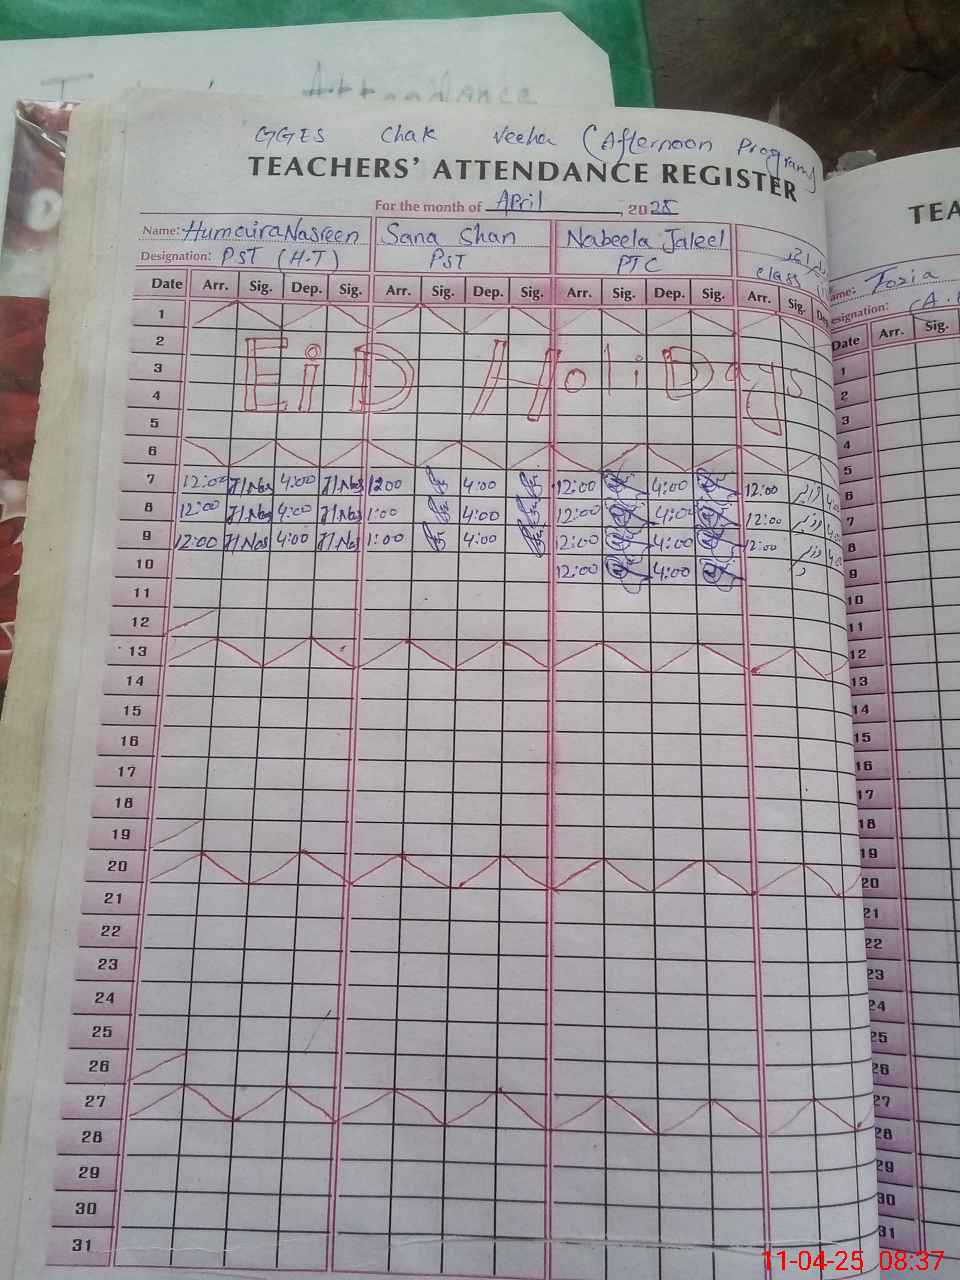 Attendance
GGES Chak Veeha (Afternoon Program)
TEACHERS' ATTENDANCE REGISTER
For the month of April, 2025
Name: Humaira Nasreen Sana Shan Nabeela Jaleel
Designation: PST (H.T) PST PTC class
Date Arr. Sig. Dep. Sig. Arr. Sig. Dep. Sig. Arr. Sig. Dep. Sig. Arr. Sig.
1
2
3 EiD HoliDays
4
5
6
7 12:00 H.Nas 4:00 H.Nas 12:00 4:00 12:00 4:00 12:00
8 12:00 H.Nas 4:00 H.Nas 1:00 4:00 12:00 4:00 12:00
9 12:00 H.Nas 4:00 H.Nas 1:00 4:00 12:00 4:00 12:00
10 12:00 4:00
11
12
13
14
15
16
17
18
19
20
21
22
23
24
25
26
27
28
29
30
31
TEA
ame: Fozia
esignation: (A.
Date Arr. Sig.
1
2
3
4
5
6
7
8
9
10
11
12
13
14
15
16
17
18
19
20
21
22
23
24
25
26
27
28
29
30
31
11-04-25 08:37